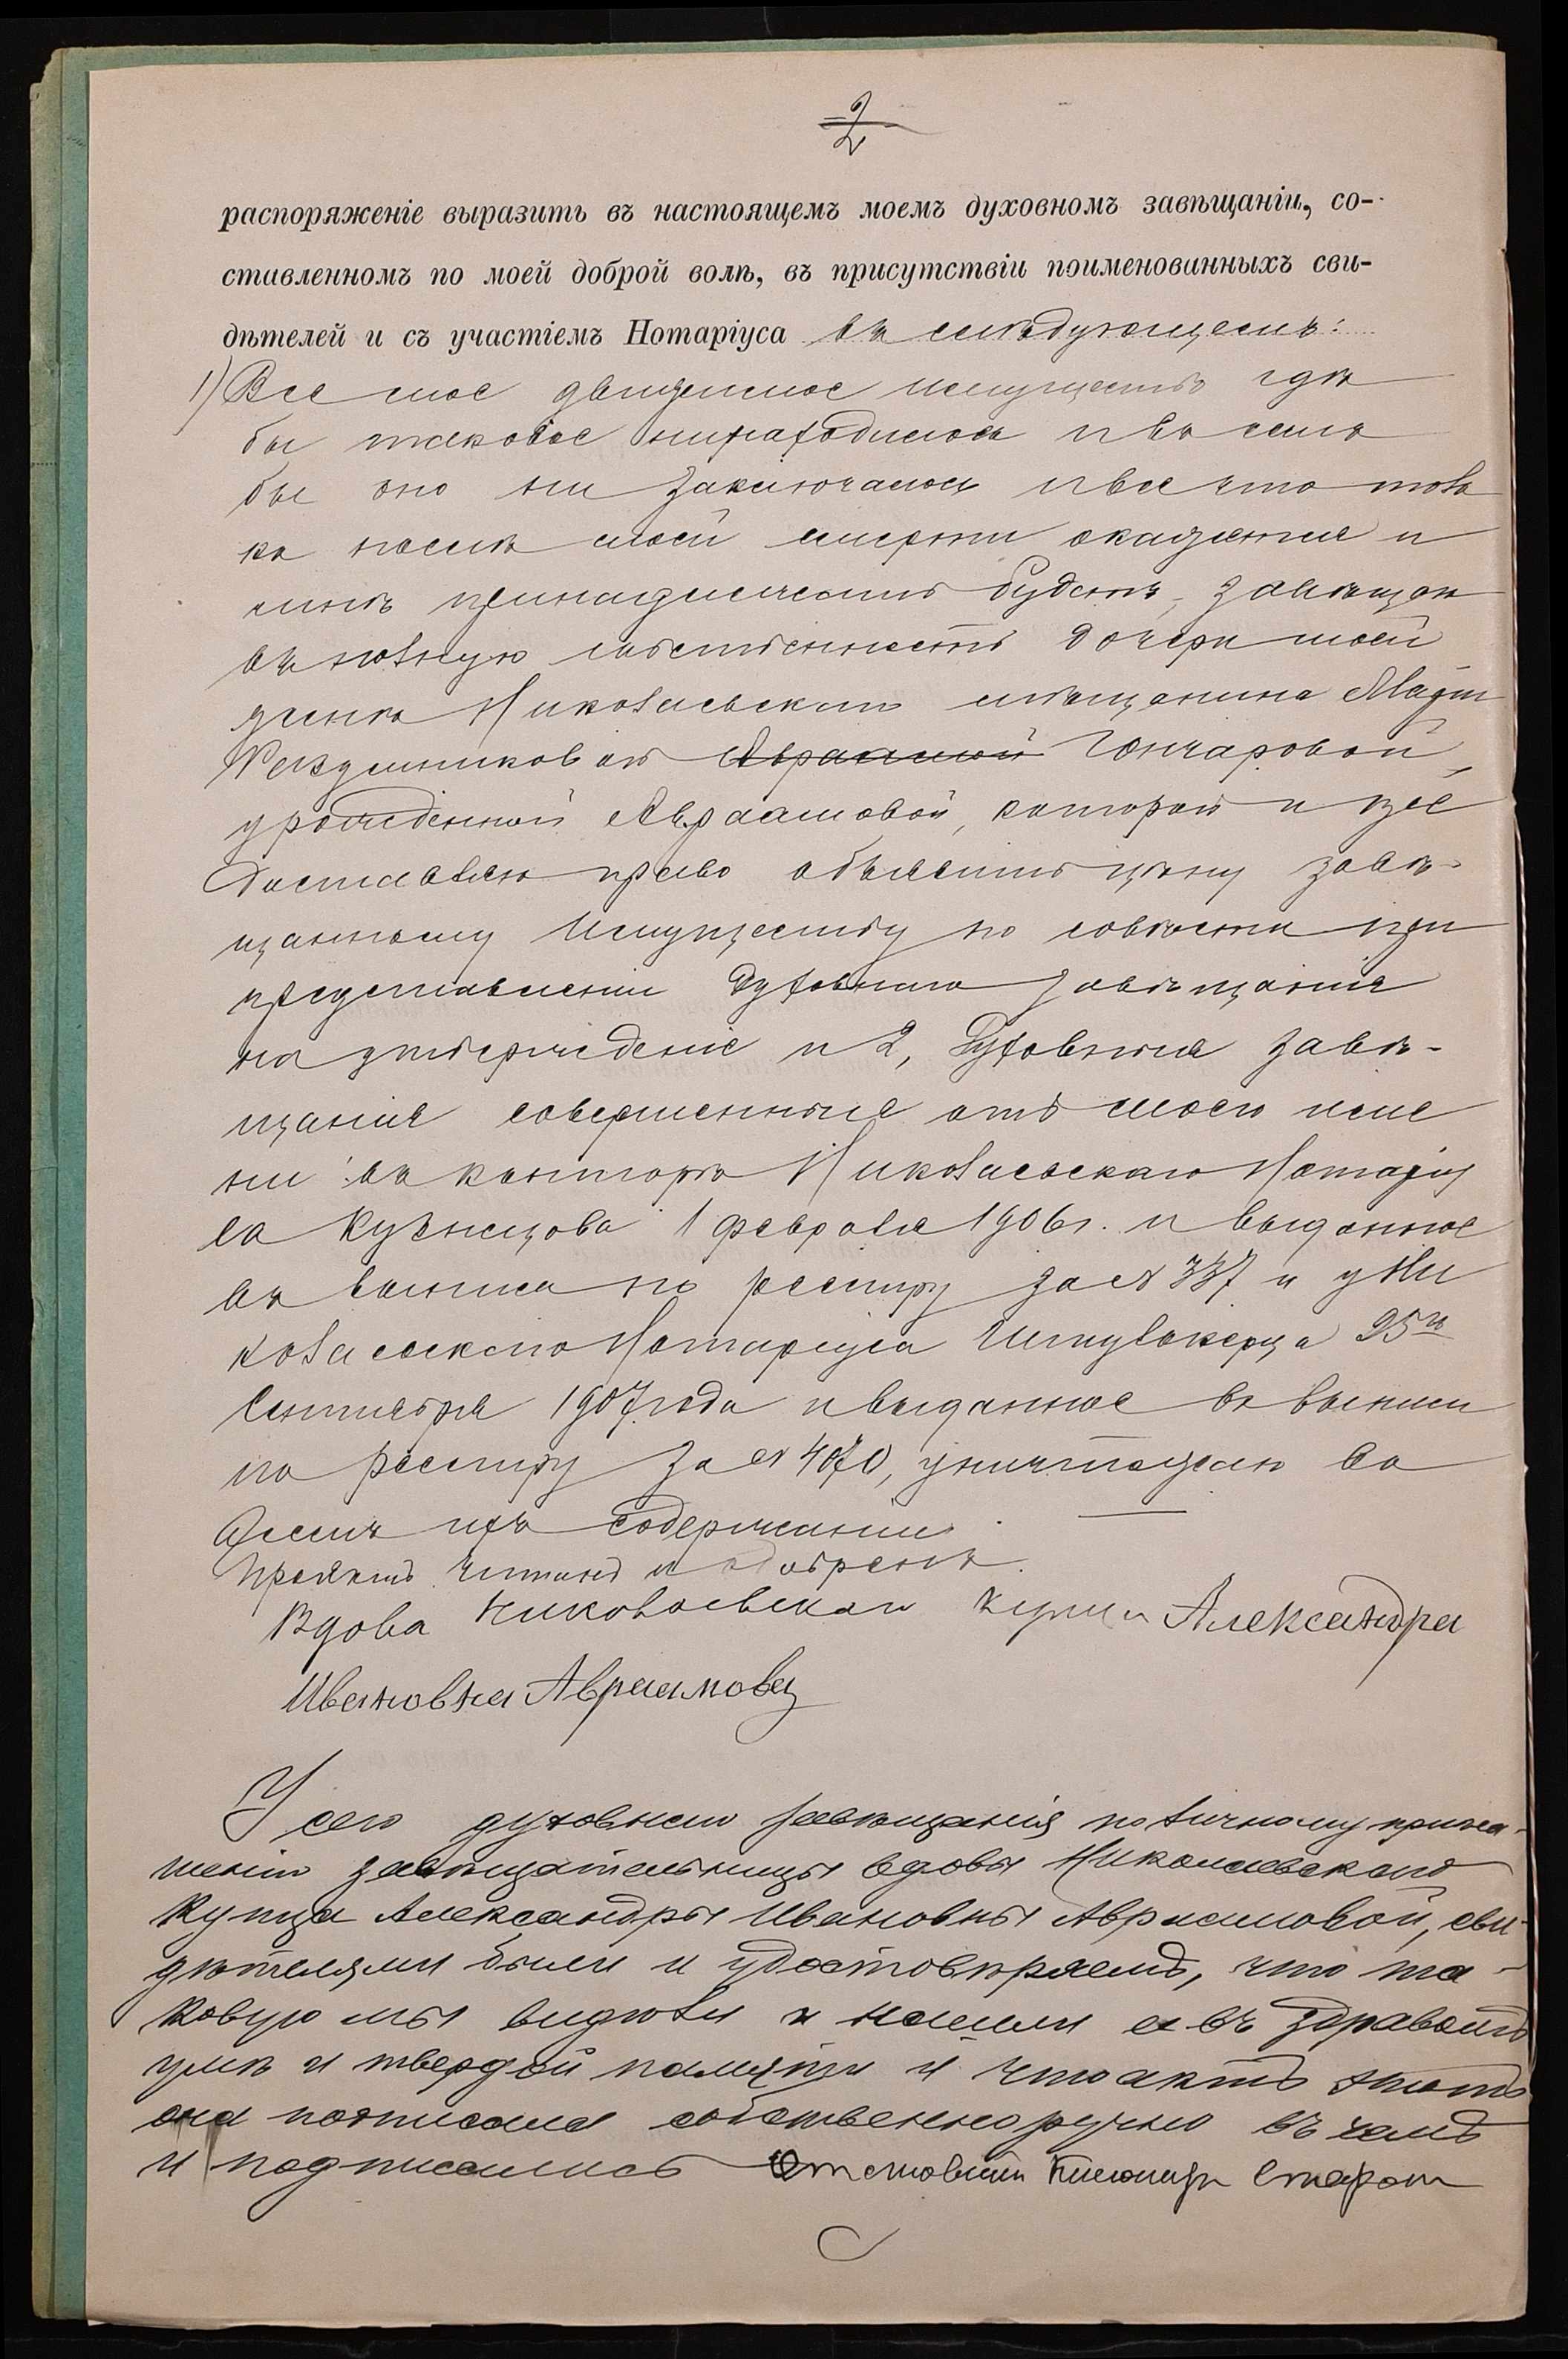 2
распоряженіе выразить въ настоящемъ моемъ духовномъ завѣщаніи, со-
ставленномъ по моей доброй волѣ, въ присутствіи поименованныхъ сви-
дѣтелей и съ участіемъ Нотаріуса въ слѣдующемъ:
1) Все мое движимое имущество гдѣ
бы таковое ни находилось и въ чемъ
бы оно ни заключалось и все что толь
ко послѣ моей смерти окажется и
мнѣ принадлежать будетъ, завѣщаю
въ полную собственность дочери моей
женѣ Николаевскаго мѣщанина
Авраамовой Гончаровой,
урожденной Авраамовой, которой и пре
доставляю право объявить цѣну завѣ-
щанному имуществу по совѣсти при
представленіи духовнаго завѣщанія
на утвержденіе и 2, Духовныя завѣ-
щанія совершенныя отъ моего име
ни въ конторѣ Николаевскаго Нотаріу
са Кузнецова 1 февраля 1906 г. и выданное
въ выписи по реестру за № 337 и у Ни
колаевскаго Нотаріуса 25го
Сентября 1907 года и выданное въ выписи
по реестру за № 4070, уничтожаю во
всемъ ихъ содержаніи.
Проэктъ читанъ и одобренъ.
Вдова Николаевскаго купца Александра
Ивановна Авраамова
У сего духовнаго завѣщанія по личному пригла-
шенію завѣщательницы вдовы Николаевскаго
купца Александры Ивановны Авраамовой, сви-
дѣтелями были и удостовѣряемъ, что та-
ковую мы видѣли и нашли въ здравомъ
умѣ и твердой памяти и что актъ этотъ
она подписала собственноручно въ чемъ
и подписались Отставной